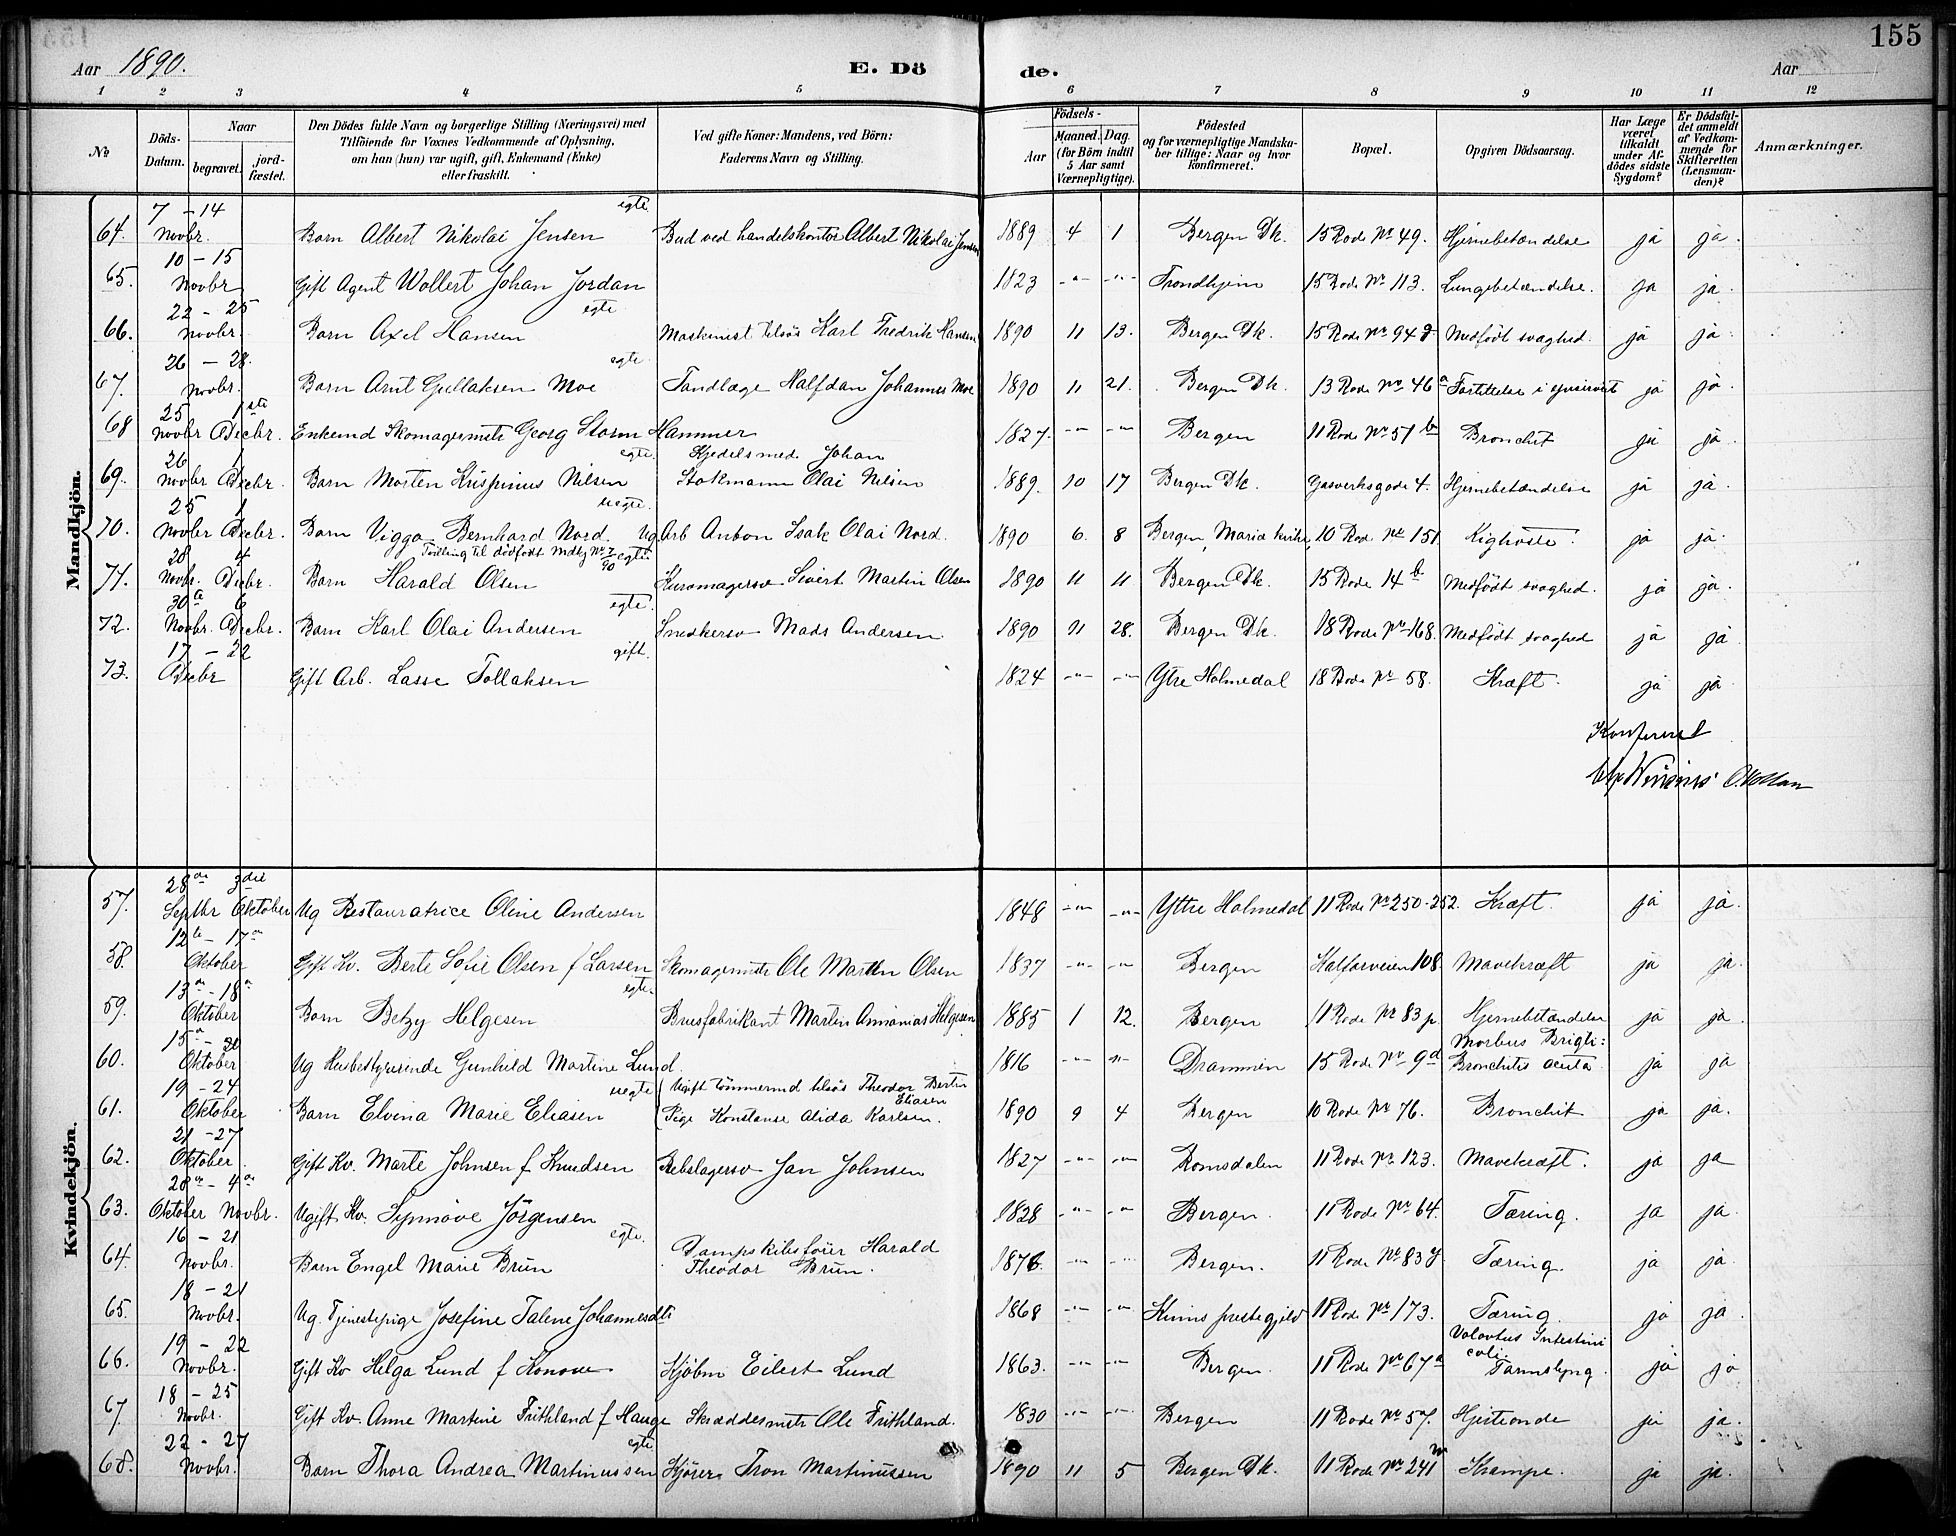 155
Aar 1890. E. Dö de. Aar
1 2 3 4 5 6 7 8 9 10 11 12
№
Döds-Datum.
Naar
begravet.
jordfæstet.
Den Dödes fulde Navn og borgerlige Stilling (Næringsvei) med
Tilföiende for Voxnes Vedkommende af Oplysning,
om han (hun) var ugift, gift, Enkemand (Enke)
eller fraskilt.
Ved gifte Koner: Mandens, ved Börn:
Faderens Navn og Stilling.
Födsels-
Aar
Maaned. Dag.
(for Börn indtil
5 Aar samt
Værnepligtige).
Födested
og for værnepligtige Mandska-
ber tillige: Naar og hvor
konfirmeret.
Bopæl.
Opgiven Dödsaarsag.
Har Læge
været
tilkaldt
under Af-
dödes sidste
Sygdom?
Er Dödsfal-
det anmeldt
af Vedkom-
mende for
Skifteretten
(Lensman-
den)?
Anmærkninger.
Mandkjön.
7 – 14 egte
64. Novbr. Barn Albert Nikolai Jensen Bud ved handelskontor Albert Nikolai Jensen 1889 4 1 Bergen Dk. 15 Rode Nr 49. Hjernebetændelse ja ja.
10 – 15
65. Novbr Gift Agent Wollert Johan Jordan 1823 -"- -"- Trondhjem 15 Rode Nr 113. Lungebetændelse. ja ja.
22 – 25 egte
66. Novbr. Barn Axel Hansen Maskinist tilsös Karl Fredrik Hansen 1890 11 13. Bergen Dk. 15 Rode Nr 94 Medfödt svaghed. ja ja.
26 – 28. egte.
67. Novbr. Barn Arnt Gullaksen Moe Tandlæge Halfdan Johannes Moe 1890 11 21. Bergen Dk. 13 Rode Nr 46a ja ja.
25 1ste
68 Novbr Decbr. Enkemd Skomagermstr Georg Storm Hammer 1827. -"- -"- Bergen 11 Rode Nr 51 b Bronchit ja ja.
26 1 egte. Kjedelsmed. Johan
69. Novbr Decbr. Barn Morten Krispinus Nilsen Stokmann Olai Nilsen 1889. 10 17 Bergen Dk. Gasverksgade 4. Hjernebetændelse ja ja.
25 1 uegte.
70. Novbr Decbr. Barn Viggo Bernhard Nord. Ug. Arb Anton Isak Olai Nord. 1890 6. 8 Bergen, Maria kirke, 10 Rod. Nr 151 Kighoste. ja ja.
28 4 Tvilling til dödfödt Mdkj Nr 7/90 egte.
71. Novbr. Decbr. Barn Harald Olsen Sivert Martin Olsen 1890 11 11 Bergen Dk. 15 Rode 14 b Medfödt svaghed. ja ja.
30 6 egte.
72. Novbr. Decbr. Barn Karl Olai Andersen Snedkersv Mads Andersen 1890 11 28. Bergen Dk. 18 Rode Nr 168. Medfödt svaghed ja ja
17 – 22 gift.
73. Decbr Gift Arb. Lasse Tollaksen 1824 -"- -"- Ytre Holmedal 18 Rode Nr 58. Kræft. ja ja
Konfereret
Kvindekjön.
28de 3die
57. Septbr Oktober Ug Restauratrice Oline Andersen 1848 -"- -"- Yttre Holmedal 11 Rode Nr 250-252 Kræft. ja ja.
12te – 17
58. Oktober Gift Kv. Berte Sofie Olsen f Larsen Skomagermstr Ole Martin Olsen 1837 -"- -"- Bergen Kalfarveien 108. Mavekræft ja ja.
13 – 18 egte.
59. Oktober Barn Betzy Helgesen Brusfabrikant Martin Annanias Helgesen 1885 1 12. Bergen 11 Rode Nr 83 p Hjernebetændelse ja ja.
15 – 20 Morbus Brigti:
60. Oktober Ug Husbestyrerinde Gunhild Martine Lund. 1816 -"- -"- Drammen 15 Rode Nr 9d Bronchitis acuta ja ja
19 – 24 uegte Ugift tömmermd tilsös Theodor Bertin Eliasen
61. Oktober Barn Elvina Marie Eliasen Pige Konstanse Alida Karlsen. 1890 9 4 Bergen 10 Rode Nr 76. Bronchit ja ja.
21 – 27
62. Oktober Gift Kv. Marte Johnsen f Knudsen Rebslagersv Jan Johnsen 1827 -"- -"- Romsdalen 11 Rode Nr 123. Mavekræft. ja ja
28 – 4
63. Oktober Novbr. Ugift Kv. Synnöve Jörgensen 1828 -"- -"- Bergen. 11 Rode Nr 64. Tæring. ja ja.
16 – 21 egte. Dampskibsförer Harald
64. Novbr. Barn Engel Marie Brun Theodor Brun. 1876. -"- -"- Bergen. 11 Rode Nr 83 y Tæring. ja ja.
18 – 21
65. Novbr. Ug. Tjenestepige Josefine Talene Johannesdtr 1868 -"- -"- Kinns prestegjeld 11 Rode Nr 173. Tæring. ja ja
19 – 22 Volovtus Intestini coli
66. Novbr. Gift Kv Helga Lund f Konow Kjöbm Eilert Lund 1863. -"- -"- Bergen. 11 Rode Nr 67 a Tarmslyng. ja ja
18 – 25
67 Novbr. Gift Kv. Anne Martine Frithland f Hauge Skræddermstr Ole Frithland. 1830 -"- -"- Bergen 11 Rode Nr 57. Hjerteonde ja ja.
22 – 27 egte
68. Novbr. Barn Thora Andrea Martinussen Kjörer Tron Martinussen 1890 11 5 Bergen Dk. 11 Rode Nr 241 Krampe. ja ja.